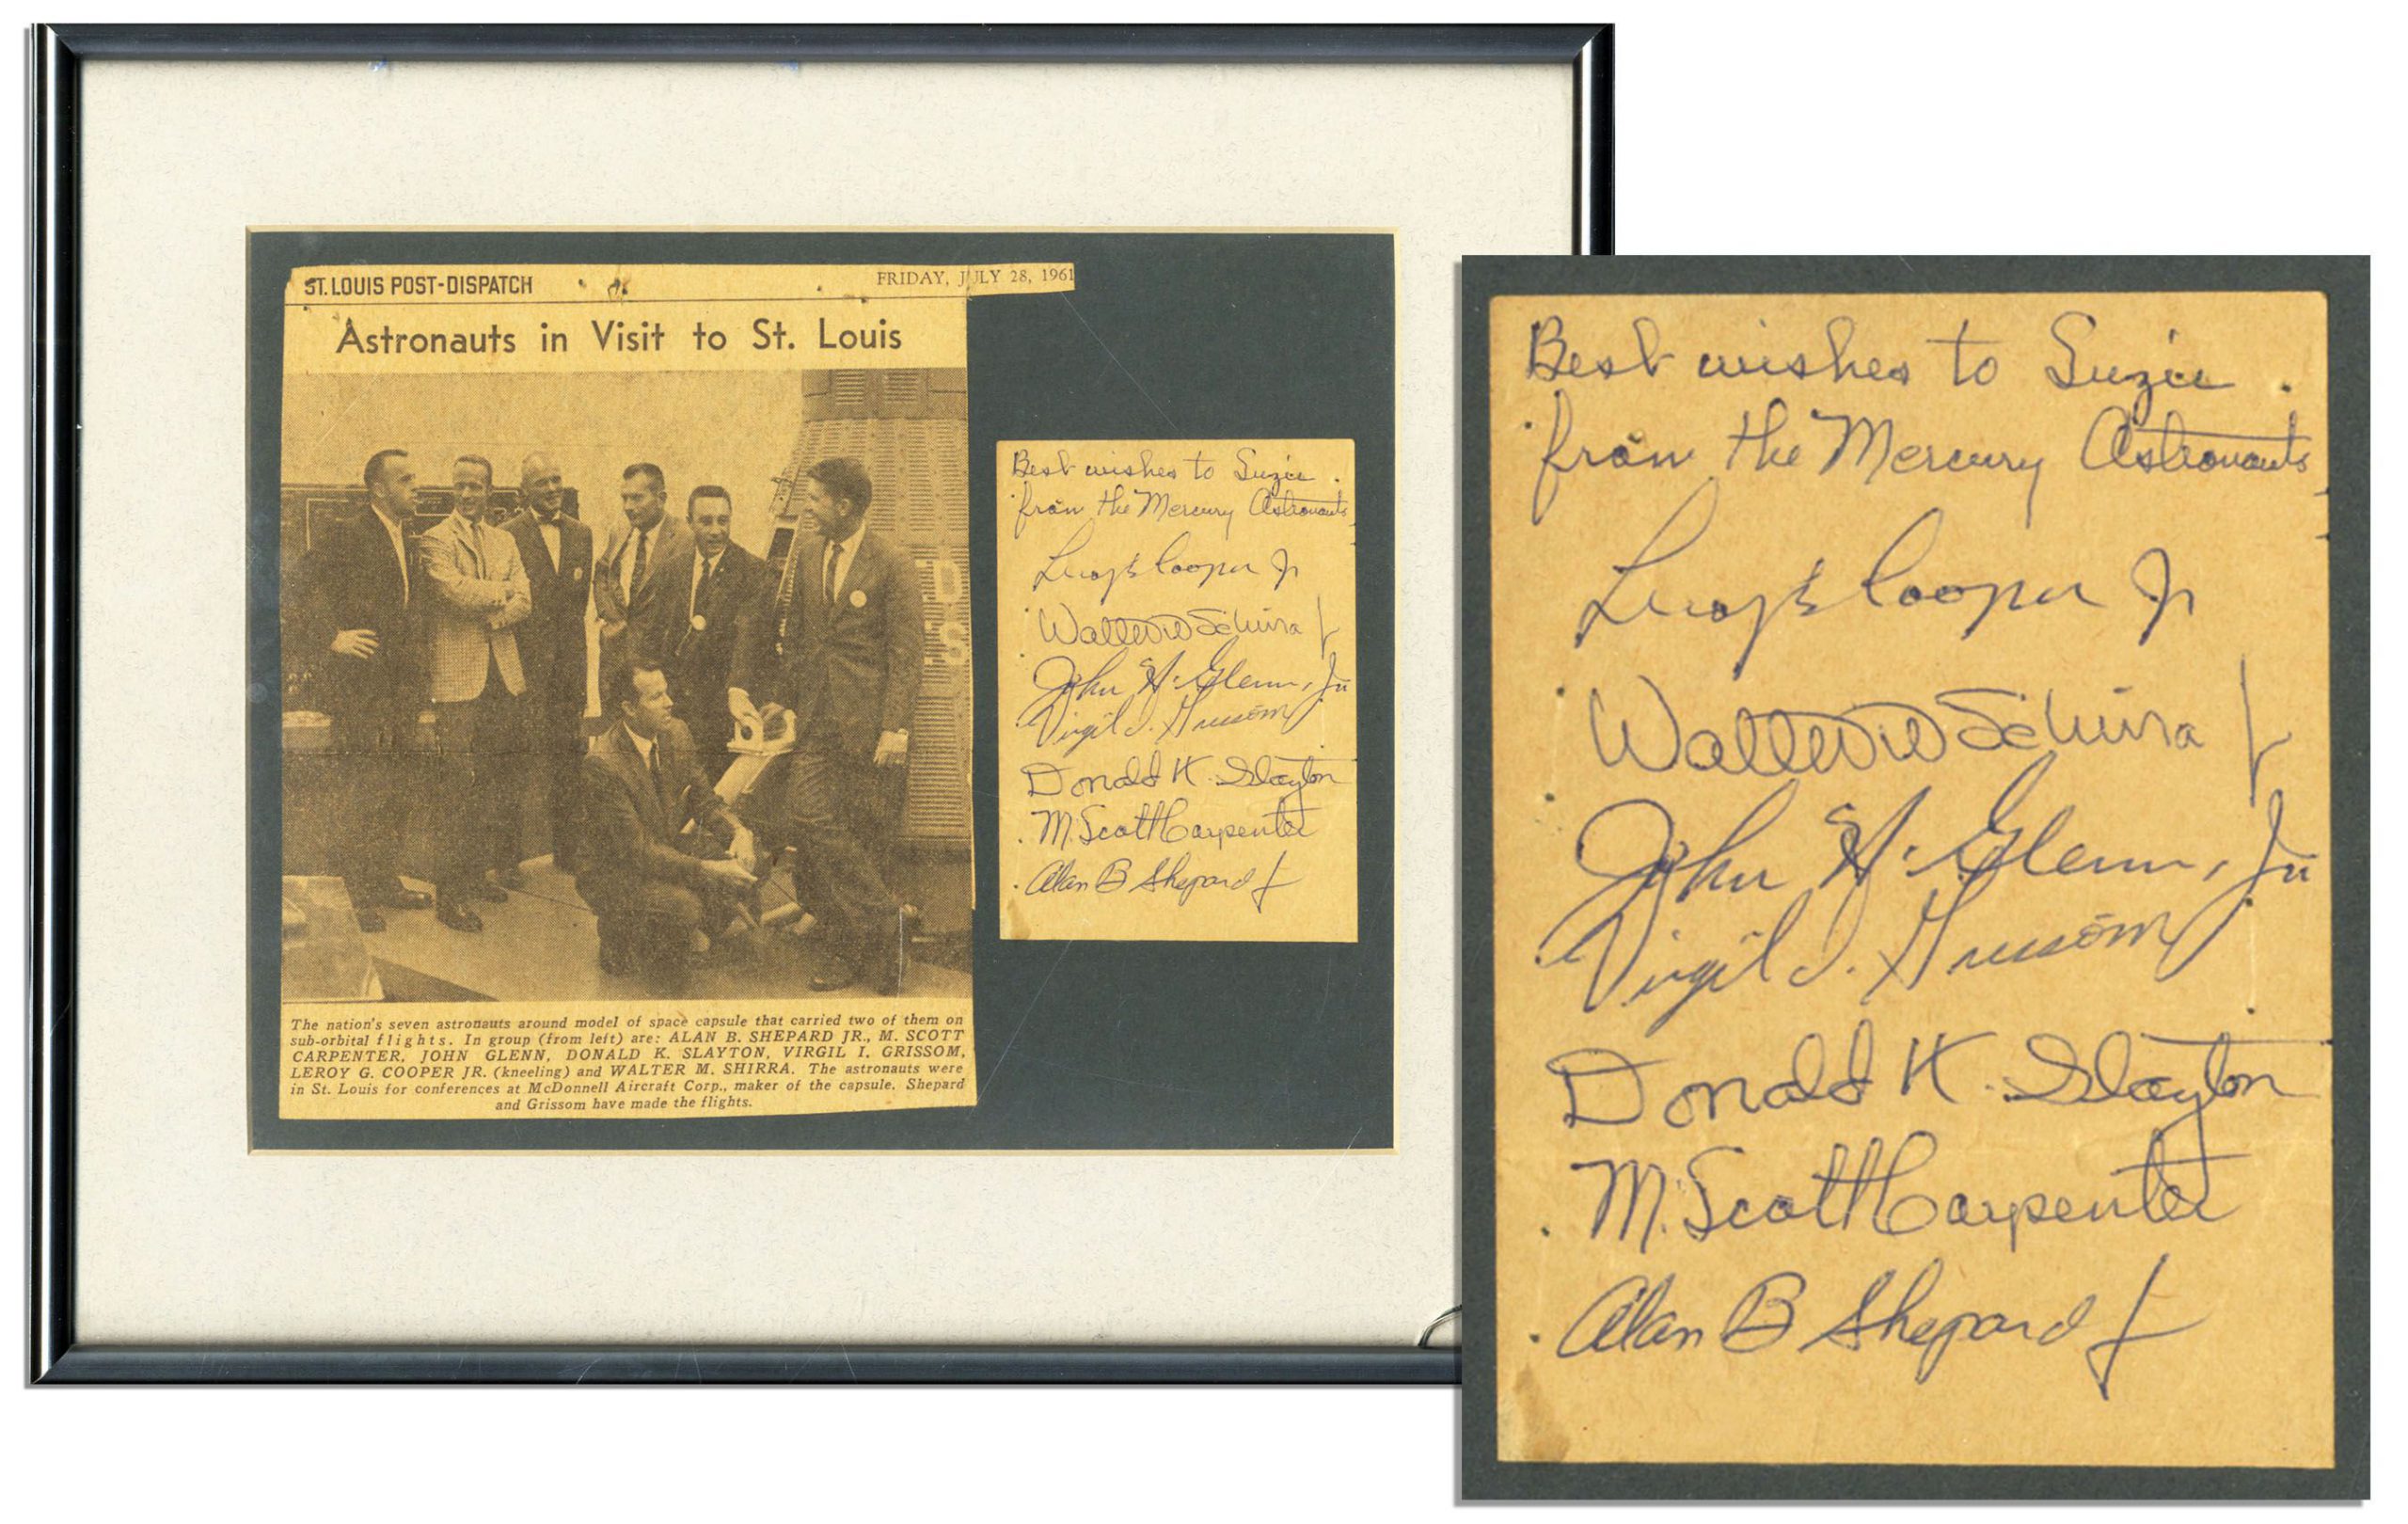 ST. LOUIS POST-DISPATCH FRIDAY, JULY 28, 1961
Astronauts in Visit to St. Louis
The nation's seven astronauts around model of space capsule that carried two of them on
sub-orbital flights. In group (from left) are: ALAN B. SHEPARD JR., M. SCOTT
CARPENTER, JOHN GLENN, DONALD K. SLAYTON, VIRGIL I. GRISSOM,
LEROY G. COOPER JR. (kneeling) and WALTER M. SHIRRA. The astronauts were
in St. Louis for conferences at McDonnell Aircraft Corp., maker of the capsule. Shepard
and Grissom have made the flights.
Best wishes to Suzie
from the Mercury Astronauts
Leroy G Cooper Jr
Walter M Schirra Jr
John H. Glenn, Jr
Virgil I. Grissom
Donald K. Slayton
M. Scott Carpenter
Alan B Shepard Jr
Best wishes to Suzie
from the Mercury Astronauts
Leroy G Cooper Jr
Walter M Schirra Jr
John H. Glenn, Jr
Virgil I. Grissom
Donald K. Slayton
M. Scott Carpenter
Alan B Shepard Jr